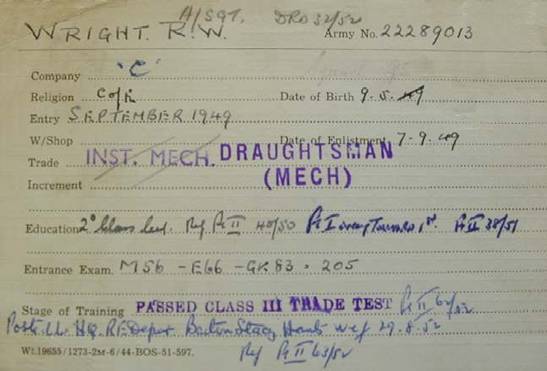 A/SGT. DRO 32/52
WRIGHT. R.W. Army No. 22289013
Company 'C'
Religion C of E Date of Birth 9.5.
Entry SEPTEMBER 1949
W/Shop Date of Enlistment 7-9-49
Trade INST. MECH. DRAUGHTSMAN
(MECH)
Increment
Education 2° Class Pt II 40/50 Pt I Pt II 38/51
Entrance Exam. M56 - E66 - GK 83 . 205
Stage of Training PASSED CLASS III TRADE TEST Pt II 62/52
H.Q. Depot. Barton Stacey Hants wef 29.8.52
Wt.19655/1273-2M-6/44-BOS-51-597. Pt II 63/52